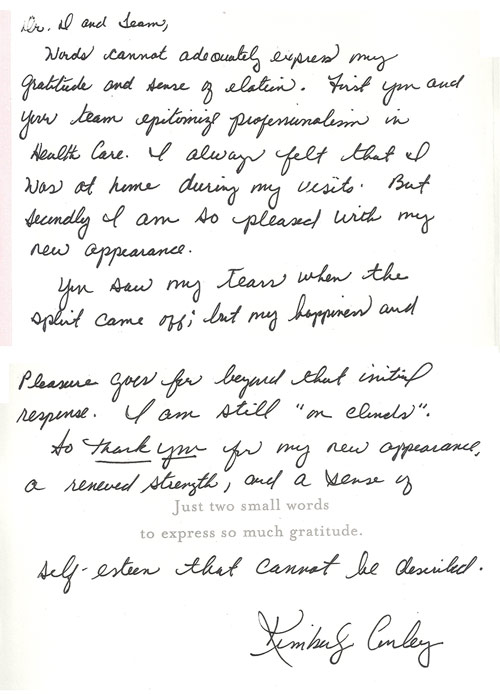 Dr. D and Team,
Words cannot adequately express my
gratitude and sense of elation. First you and
your team epitomize professionalism in
Health Care. I always felt that I
was at home during my visits. But
secondly I am so pleased with my
new appearance.
You saw my tears when the
splint came off; but my happiness and
pleasure goes far beyond that initial
response. I am still "on clouds".
So thank you for my new appearance,
a renewed strength, and a sense of
Just two small words
to express so much gratitude.
self-esteem that cannot be described.
Kimberly Conley